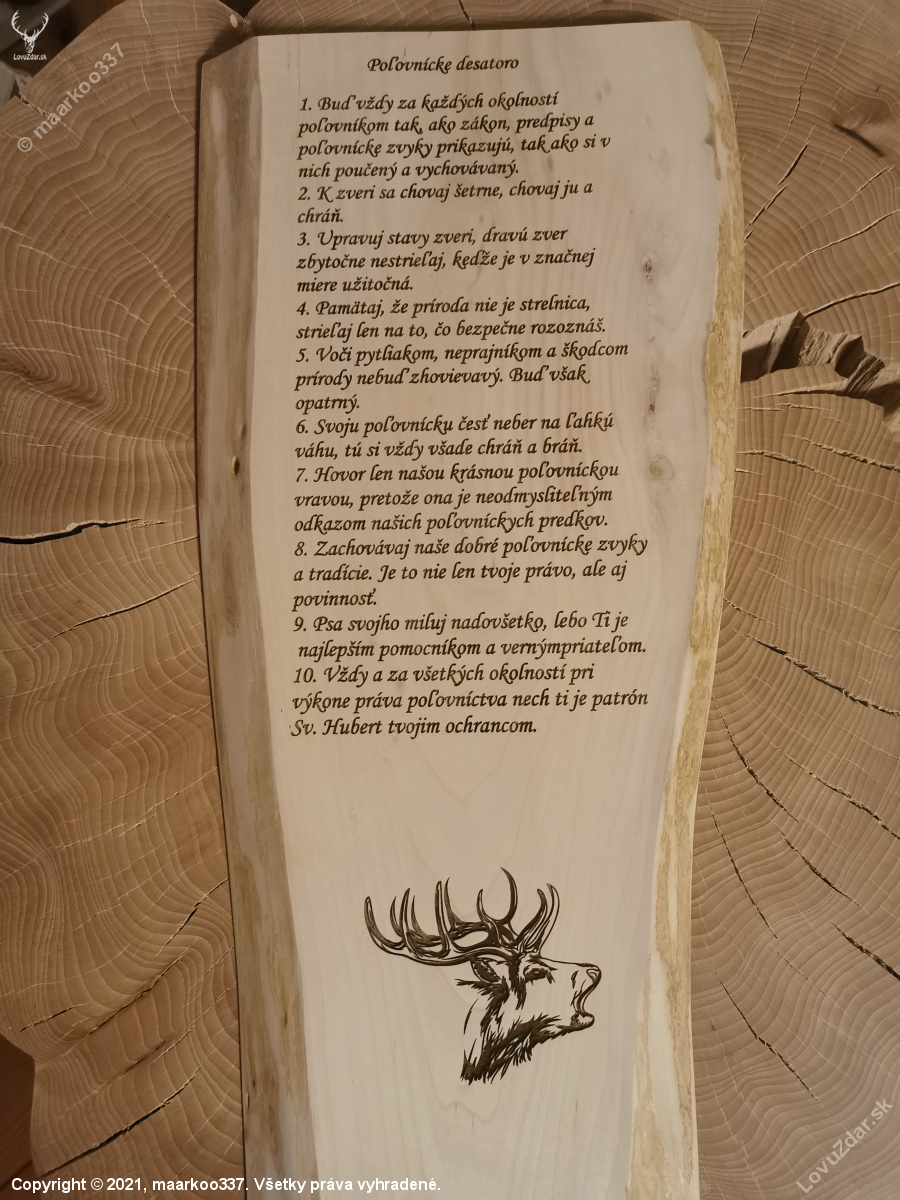 LovuZdar.sk
© maarkoo337
Poľovnícke desatoro
1. Buď vždy za každých okolností
poľovníkom tak, ako zákon, predpisy a
poľovnícke zvyky prikazujú, tak ako si v
nich poučený a vychovávaný.
2. K zveri sa chovaj šetrne, chovaj ju a
chráň.
3. Upravuj stavy zveri, dravú zver
zbytočne nestrieľaj, keďže je v značnej
miere užitočná.
4. Pamätaj, že príroda nie je strelnica,
strieľaj len na to, čo bezpečne rozoznáš.
5. Voči pytliakom, neprajníkom a škodcom
prírody nebuď zhovievavý. Buď však
opatrný.
6. Svoju poľovnícku česť neber na ľahkú
váhu, tú si vždy všade chráň a bráň.
7. Hovor len našou krásnou poľovníckou
vravou, pretože ona je neodmysliteľným
odkazom našich poľovníckych predkov.
8. Zachovávaj naše dobré poľovnícke zvyky
a tradície. Je to nie len tvoje právo, ale aj
povinnosť.
9. Psa svojho miluj nadovšetko, lebo Ti je
najlepším pomocníkom a vernýmpriateľom.
10. Vždy a za všetkých okolností pri
výkone práva poľovníctva nech ti je patrón
Sv. Hubert tvojim ochrancom.
LovuZdar.sk
Copyright © 2021, maarkoo337. Všetky práva vyhradené.